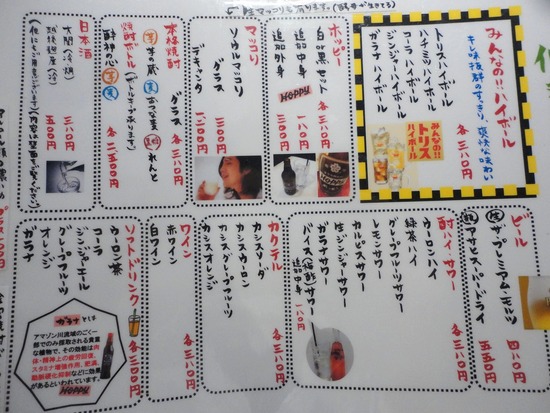 生マッコリも有ります。(酵母が生きてる)
みんなの!!ハイボール
キレ味抜群のすっきり、爽快な味わい
トリスハイボール
ハチミツハイボール
コーラハイボール
ジンジャーハイボール
ガラナハイボール
各三八〇円
みんなの!!
トリス
ハイボール
ホッピー
白・黒セット 三八〇円
追加中身 一八〇円
追加外身
HOPPY
マッコリ
ソウルマッコリ
グラス 三〇〇円
デキャンタ
本格焼酎
グラス 各三八〇円
芋 芋の蔵 麦 おつな麦 黒糖 れんと
焼酎ボトル(ボトルキープ有ります)
酔神の心 芋 麦 各二五〇〇円
日本酒
大関(冷・燗) 三八〇円
越後桜(冷) 五〇〇円
ビール
生 ザ・プレミアム・モルツ 四八〇円
瓶 アサヒスーパードライ 五五〇円
酎ハイ・サワー 各三八〇円
ウーロンハイ
緑茶ハイ
グレープフルーツサワー
レモンサワー
カルピスサワー
生ジンジャーサワー
ガラナサワー
バイス(梅酢)サワー
追加中身 一八〇円
カクテル 各三八〇円
カシスソーダ
カシスウーロン
カシスグレープフルーツ
カシスオレンジ
ワイン
赤ワイン 各三八〇円
白ワイン
ソフトドリンク 各三〇〇円
ウーロン茶
コーラ
ジンジャーエール
グレープフルーツ
オレンジ
ガラナ
ガラナとは
アマゾン川流域のごく一
部でのみ採取される貴重
な植物で、その効能は肉
体・精神上の疲労回復、
スタミナ増強作用、肥満、
動脈硬化抑制などに効果
があるといわれています。
HOPPY